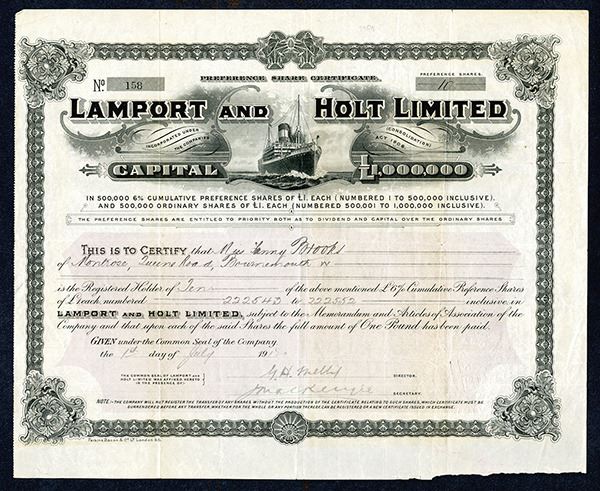 PREFERENCE SHARE CERTIFICATE.
No 158
PREFERENCE SHARES.
10
LAMPORT AND HOLT LIMITED
INCORPORATED UNDER THE COMPANIES (CONSOLIDATION) ACT 1908
CAPITAL £1,000,000
IN 500,000 6% CUMULATIVE PREFERENCE SHARES OF £1. EACH (NUMBERED 1 TO 500,000 INCLUSIVE).
AND 500,000 ORDINARY SHARES OF £1. EACH (NUMBERED 500,001 TO 1,000,000 INCLUSIVE).
THE PREFERENCE SHARES ARE ENTITLED TO PRIORITY BOTH AS TO DIVIDEND AND CAPITAL OVER THE ORDINARY SHARES
THIS IS TO CERTIFY that Miss Fanny Brooks
of Montrose, Queens Road, Bournemouth W
is the Registered Holder of Ten of the above mentioned £6% Cumulative Preference Shares
of £1 each, numbered 222543 to 222552 inclusive, in
LAMPORT AND HOLT LIMITED, subject to the Memorandum and Articles of Association of the
Company and that upon each of the said Shares the full amount of One Pound has been paid.
GIVEN under the Common Seal of the Company.
the 1st day of July 191
THE COMMON SEAL OF LAMPORT AND
HOLT LIMITED WAS AFFIXED HERETO
IN THE PRESENCE OF
G.H. Melly
DIRECTOR.
SECRETARY.
NOTE:-THE COMPANY WILL NOT REGISTER THE TRANSFER OF ANY SHARES WITHOUT THE PRODUCTION OF THE CERTIFICATE RELATING TO SUCH SHARES, WHICH CERTIFICATE MUST BE
SURRENDERED BEFORE ANY TRANSFER, WHETHER FOR THE WHOLE OR ANY PORTION THEREOF, CAN BE REGISTERED OR A NEW CERTIFICATE ISSUED IN EXCHANGE.
Perkins Bacon & Co Ld London E.C.